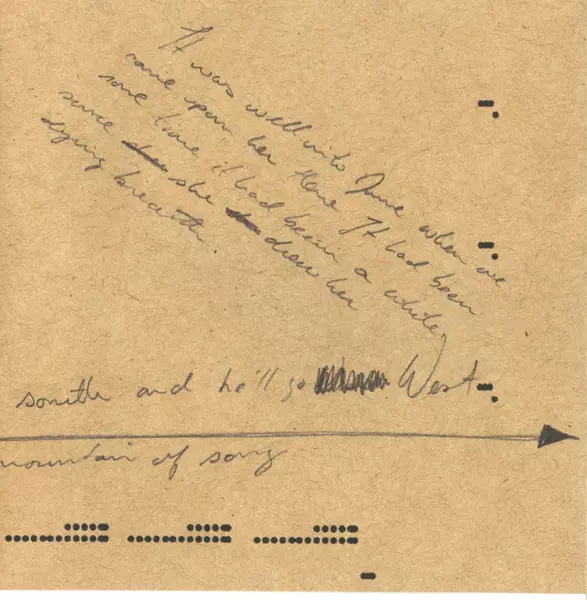 It was well into June when we
came upon her there It had been
some time it had been a while,
since she drew her
dying breath.
south and he'll go West
mountain of song